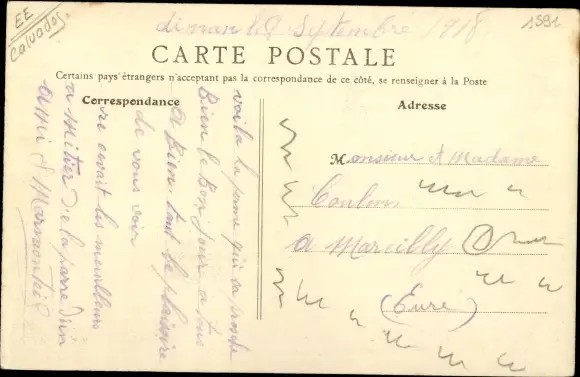 EE
Calvados
dimanche 8 Septembre 1918
1591
CARTE POSTALE
Certains pays étrangers n'acceptant pas la correspondance de ce côté, se renseigner à la Poste
Correspondance
Adresse
voila la qui
Bien le Bonjour a tous
a Bien tout le plaisire
de vous voir
les meuilleurs
a de la part d'un
ami Marmonteil
Monsieur et Madame
Coulon
a Marcilly
(Eure)